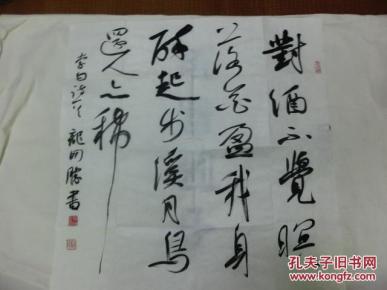 對酒不覺暝
落花盈我身
醉起步溪月鳥
還人亦稀
李白詩 龍開勝書
孔夫子旧书网